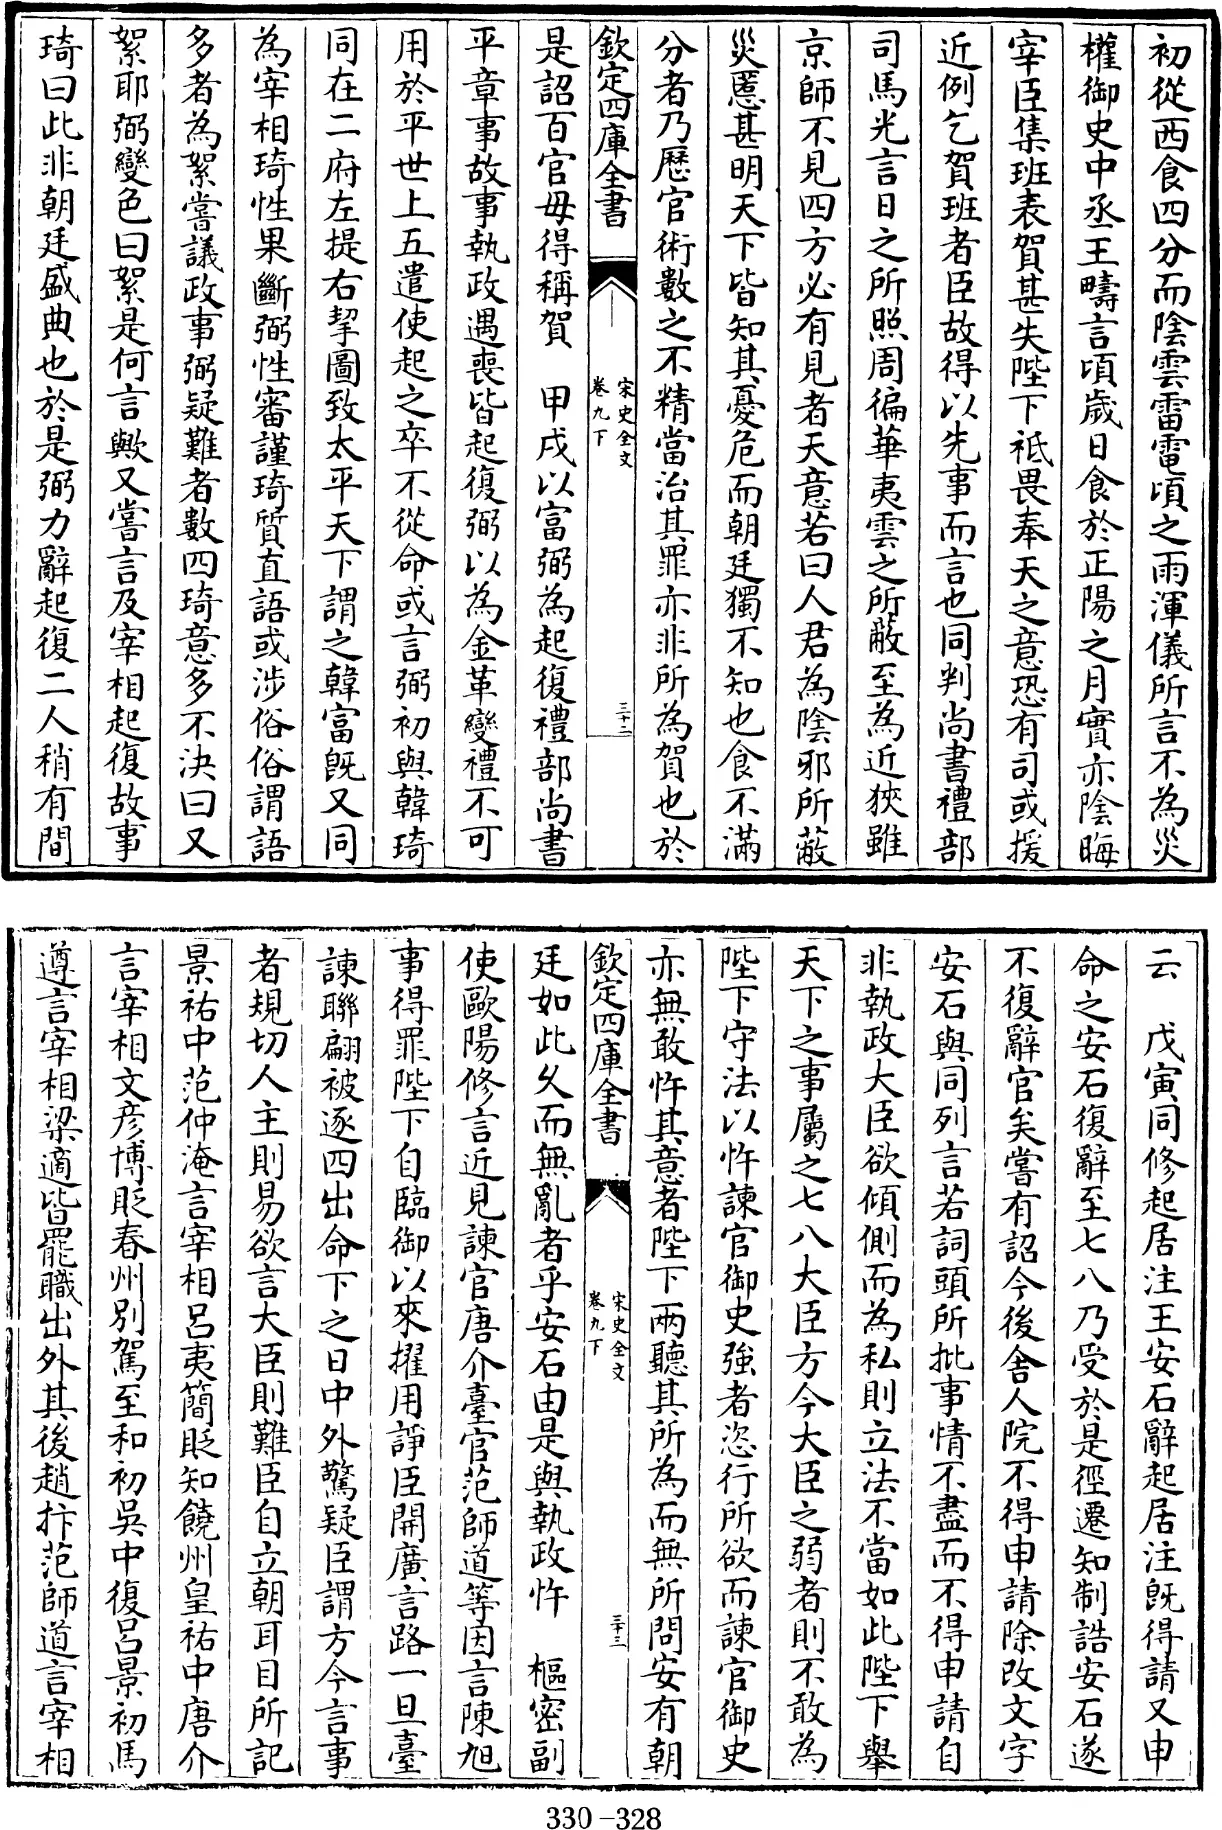 初從西食四分而陰雲雷電頃之雨渾儀所言不為災
權御史中丞王疇言頃歲日食於正陽之月實亦陰晦
宰臣集班表賀甚失陛下祗畏奉天之意恐有司或援
近例乞賀班者臣故得以先事而言也同判尚書禮部
司馬光言日之所照周徧華夷雲之所蔽至為近狹雖
京師不見四方必有見者天意若曰人君為陰邪所蔽
災慝甚明天下皆知其憂危而朝廷獨不知也食不滿
分者乃歷官術數之不精當治其罪亦非所為賀也於
欽定四庫全書
宋史全文
卷九下
三十二
是詔百官毋得稱賀　甲戌以富弼為起復禮部尚書
平章事故事執政遇喪皆起復弼以為金革變禮不可
用於平世上五遣使起之卒不從命或言弼初與韓琦
同在二府左提右挈圖致太平天下謂之韓富旣又同
為宰相琦性果斷弼性審謹琦質直語或涉俗俗謂語
多者為絮嘗議政事弼疑難者數四琦意多不決曰又
絮耶弼變色曰絮是何言歟又嘗言及宰相起復故事
琦曰此非朝廷盛典也於是弼力辭起復二人稍有間
云　戊寅同修起居注王安石辭起居注旣得請又申
命之安石復辭至七八乃受於是徑遷知制誥安石遂
不復辭官矣嘗有詔今後舍人院不得申請除改文字
安石與同列言若詞頭所批事情不盡而不得申請自
非執政大臣欲傾側而為私則立法不當如此陛下舉
天下之事屬之七八大臣方今大臣之弱者則不敢為
陛下守法以忤諫官御史強者恣行所欲而諫官御史
亦無敢忤其意者陛下兩聽其所為而無所問安有朝
欽定四庫全書
宋史全文
卷九下
三十三
廷如此久而無亂者乎安石由是與執政忤　樞密副
使歐陽修言近見諫官唐介臺官范師道等因言陳旭
事得罪陛下自臨御以來擢用諍臣開廣言路一旦臺
諫聯翩被逐四出命下之日中外驚疑臣謂方今言事
者規切人主則易欲言大臣則難臣自立朝耳目所記
景祐中范仲淹言宰相呂夷簡貶知饒州皇祐中唐介
言宰相文彥博貶春州別駕至和初吳中復呂景初馬
遵言宰相梁適皆罷職出外其後趙抃范師道言宰相
330-328